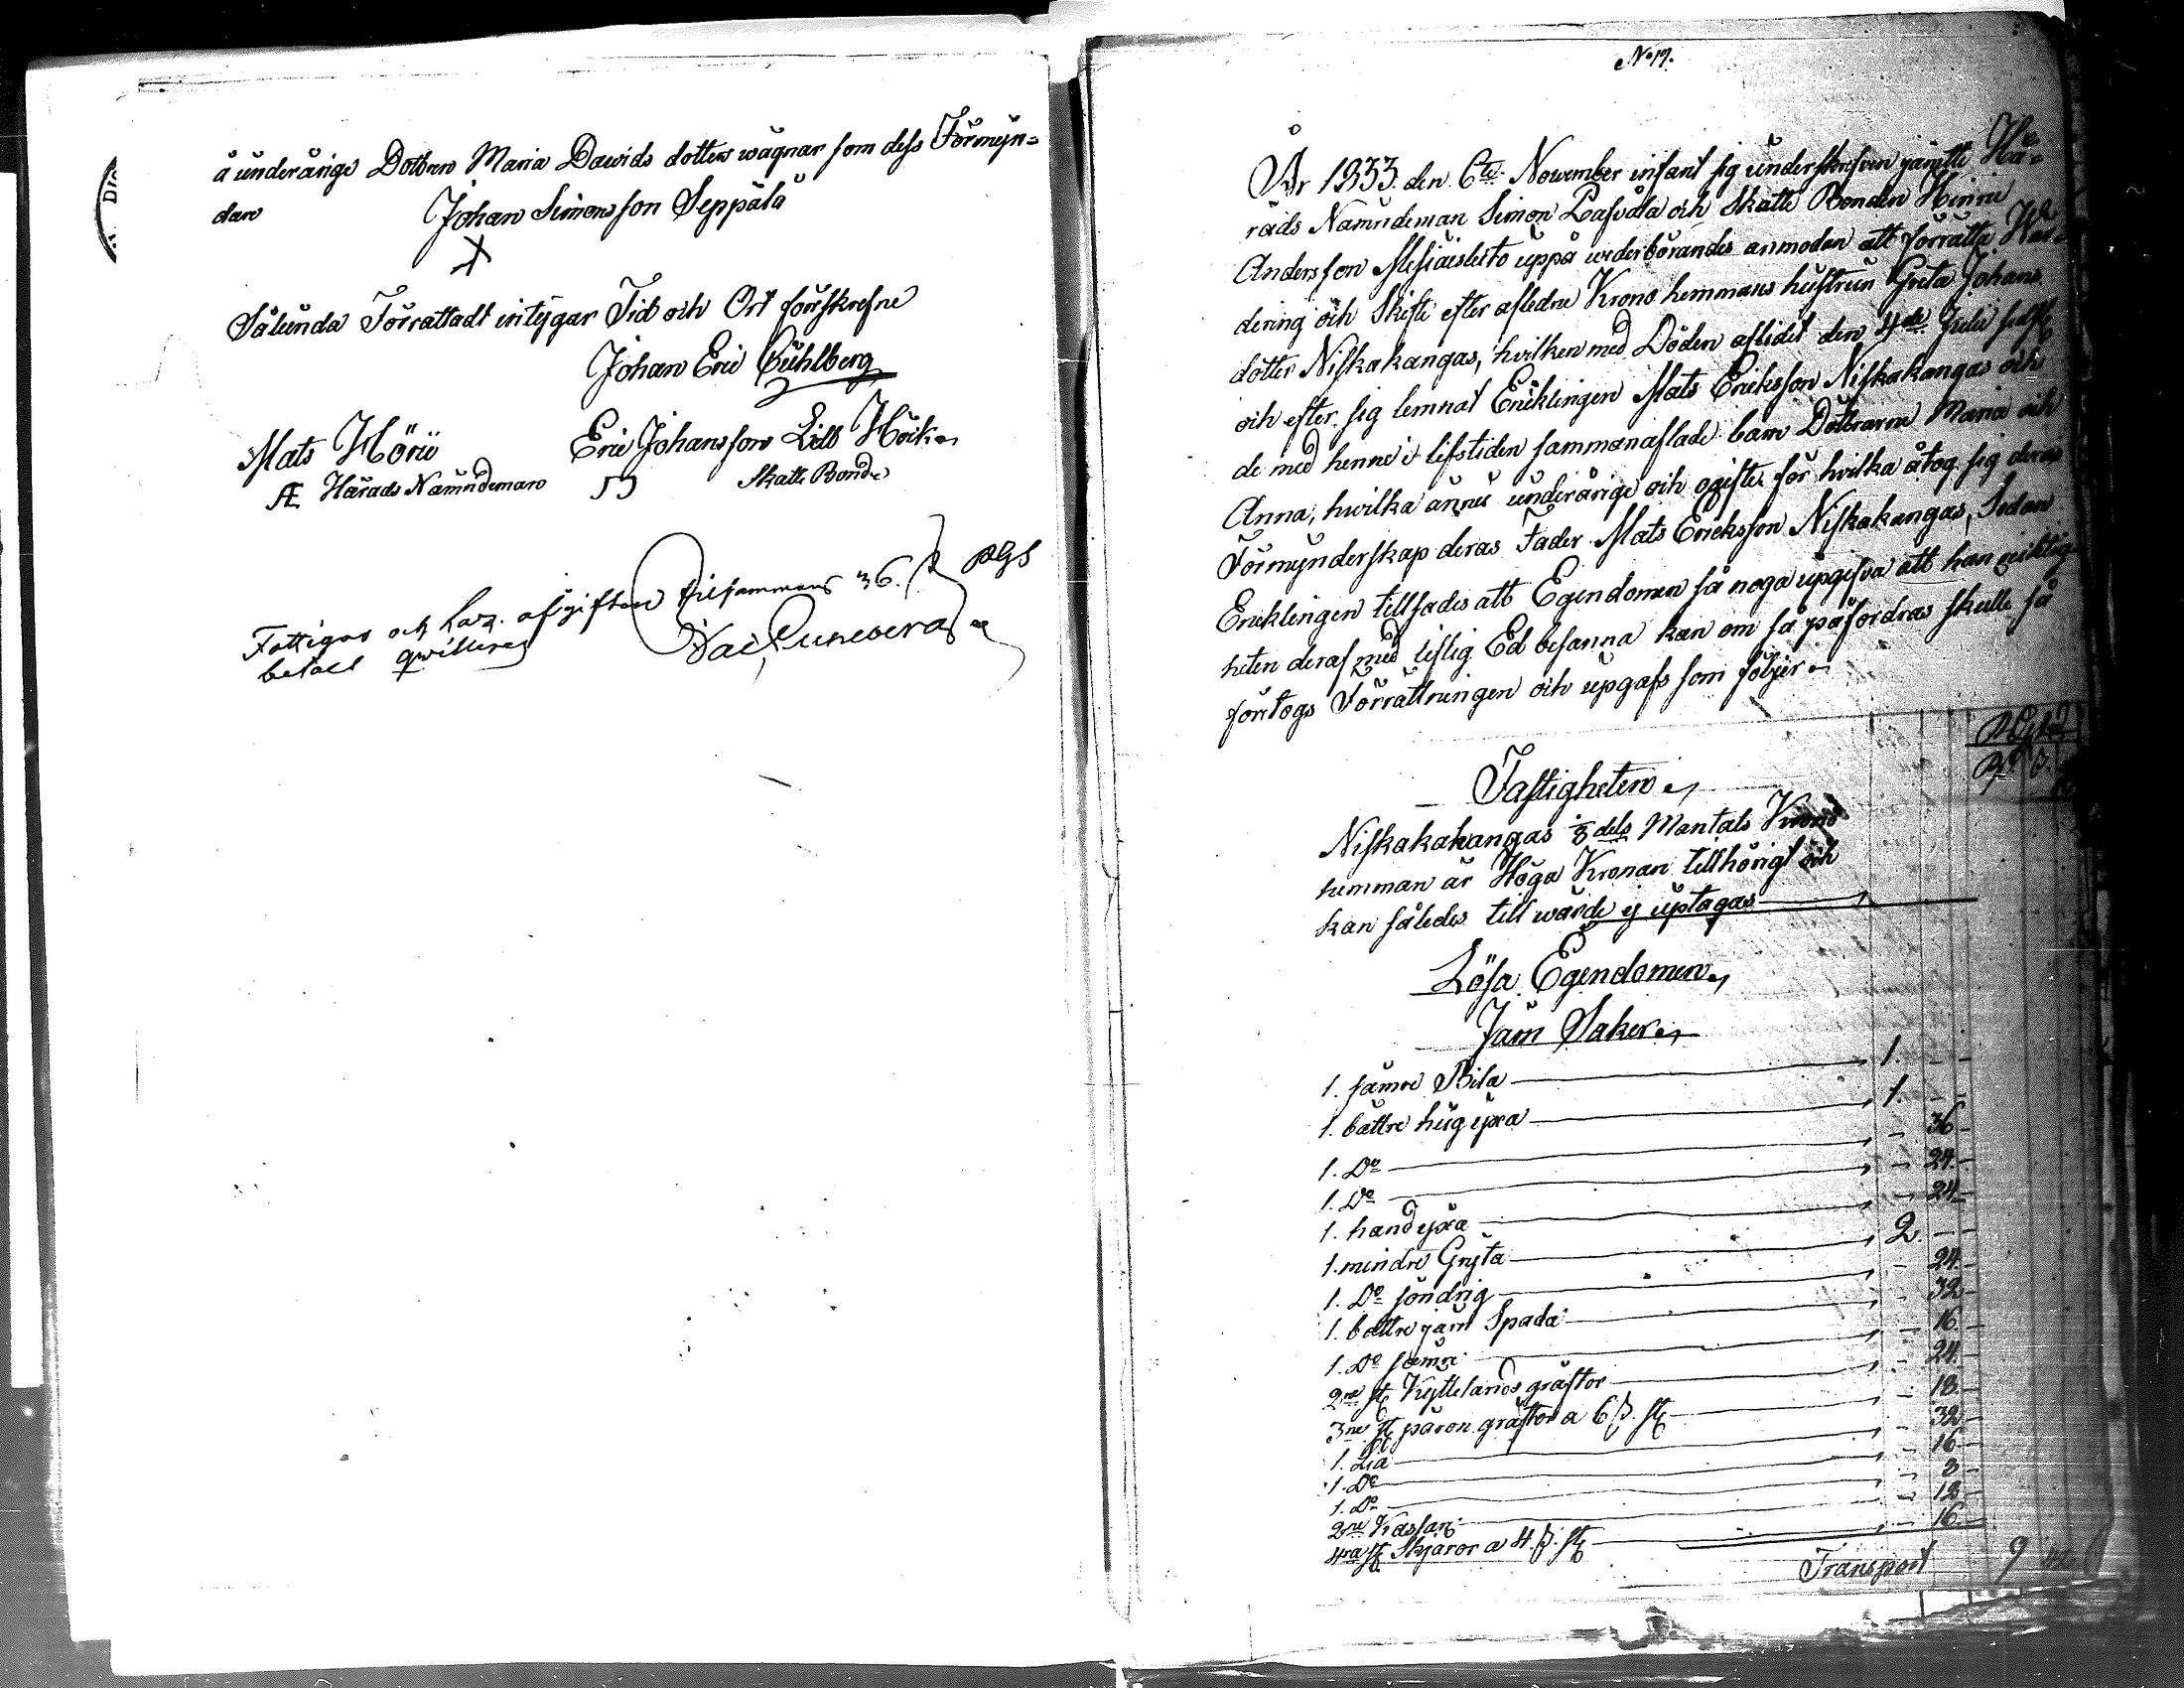 å underårige Dottren Maria Dawids dotters wägnar som dess Förmyn=
dare
Johan Simonsson Seppälä
Sålunda Förrattadt intygar Tid och Ort förrskrefne
Johan Eric Cuhlberg
Mats Hörü
Eric Johansson Lill Höik
Härads Nämndeman
Skatte Bonde
Fattigas och afgiften tilsammans 36. RGS
betalt qwitterar
No 17.
År 1833. den 6te November infant sig underskrefven jämtte Hä=
rads Nämndeman Simon Pasuåla och Skatte Bonden Hinric
Andersson uppå wederbörandes anmodan att förrätta Wär=
dering och Skifte efter afledne Krono hemmans hustrun Greta Johans
dotter Niskakangas, hvilken med Döden aflidit den 4de Julii
och efter sig lemnat Enklingen Mats Ericksson Niskakangas och
de med henne i lifstiden sammanaflade barn Döttrarne Maria och
Anna, hwilka ännu underårige och ogifte för hvilka åtog sig deras
Förmynderskap deras Fader Mats Ericksson Niskakangas, Sedan
Enklingen tillsades att Egendomen så noga uppgifva att han
heten deraf med liflig Ed besanna kan om så påfordras skulle så
förtogs Förrättningen och upgafs som följer
Fastigheten
Niskakakangas 3/8 dels Mantals Krono
hemman är Höga Kronan tillhörigt och
kan således till wärde ej uptagas
Lösa Egendomen
Järn Saker
1. sämre Bila 1. -
1. bättre hugyxa 1. -
1. Do - 36 -
1. Do - 24. -
1. handyxa - 24 -
1. mindre Gryta 2. -
1. Do söndrig - 24. -
1. bättre järn Spada - 32 -
1. Do sämre - 16. -
2ne st Kyttelands gräftor - 24. -
3ne st päron gräftor a 6 ß. st - 18. -
1. Lia - 32 -
1. Do - 16 -
1. Do - 8 -
2ne Kassari - 12 -
4ra st Skjäror a 4 ß. st - 16. -
Transport 9